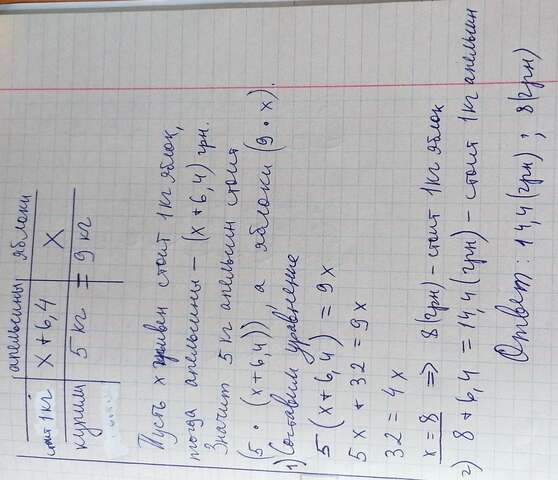 апельсины яблоки
стоит 1кг x + 6,4 x
купили 5 кг = 9 кг
Пусть x гривен стоит 1кг яблок,
тогда апельсины – (x + 6,4) грн.
Значит 5 кг апельсин стоит
(5 · (x + 6,4)), а яблоки (9 · x).
1) Составим уравнение
5 (x + 6,4) = 9x
5x + 32 = 9x
32 = 4x
x = 8 => 8 (грн) – стоит 1кг яблок
2) 8 + 6,4 = 14,4 (грн) – стоит 1кг апельсин
Ответ: 14,4 (грн) ; 8 (грн)